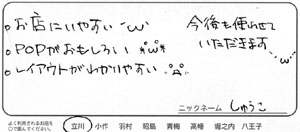 。お店にいやすい ´ω`
。POPがおもしろい ´ω`
。レイアウトがわかりやすい
今後も使わせて
いただきます
´ω`
ニックネーム しゅうこ
よく利用されるお店を
○で囲んでください。
立川 小作 羽村 昭島 青梅 高幡 堀之内 八王子